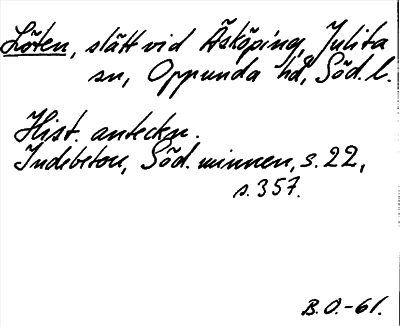 Löten, slätt vid Äsköping, Julita
sn, Oppunda hd, Söd. l.
Hist. anteckn.
Indebetou, Söd. minnen, s. 22,
s. 357.
B.O.-61.